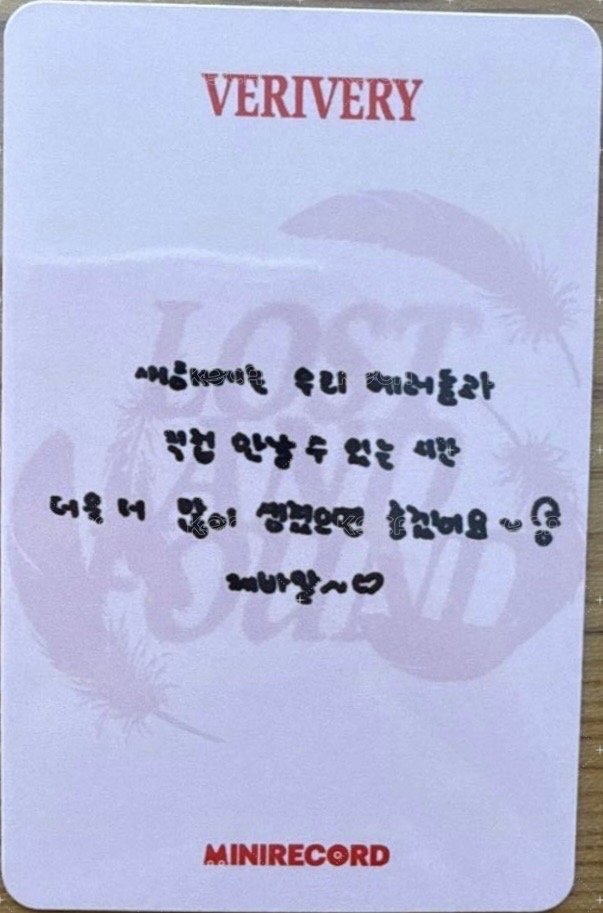 VERIVERY
LOST
AND
FOUND
새해에는 우리 베러들과
직접 만날 수 있는 시간
더욱 더 많이 생겼으면 좋겠어요~
제바알~♡
MINIRECORD